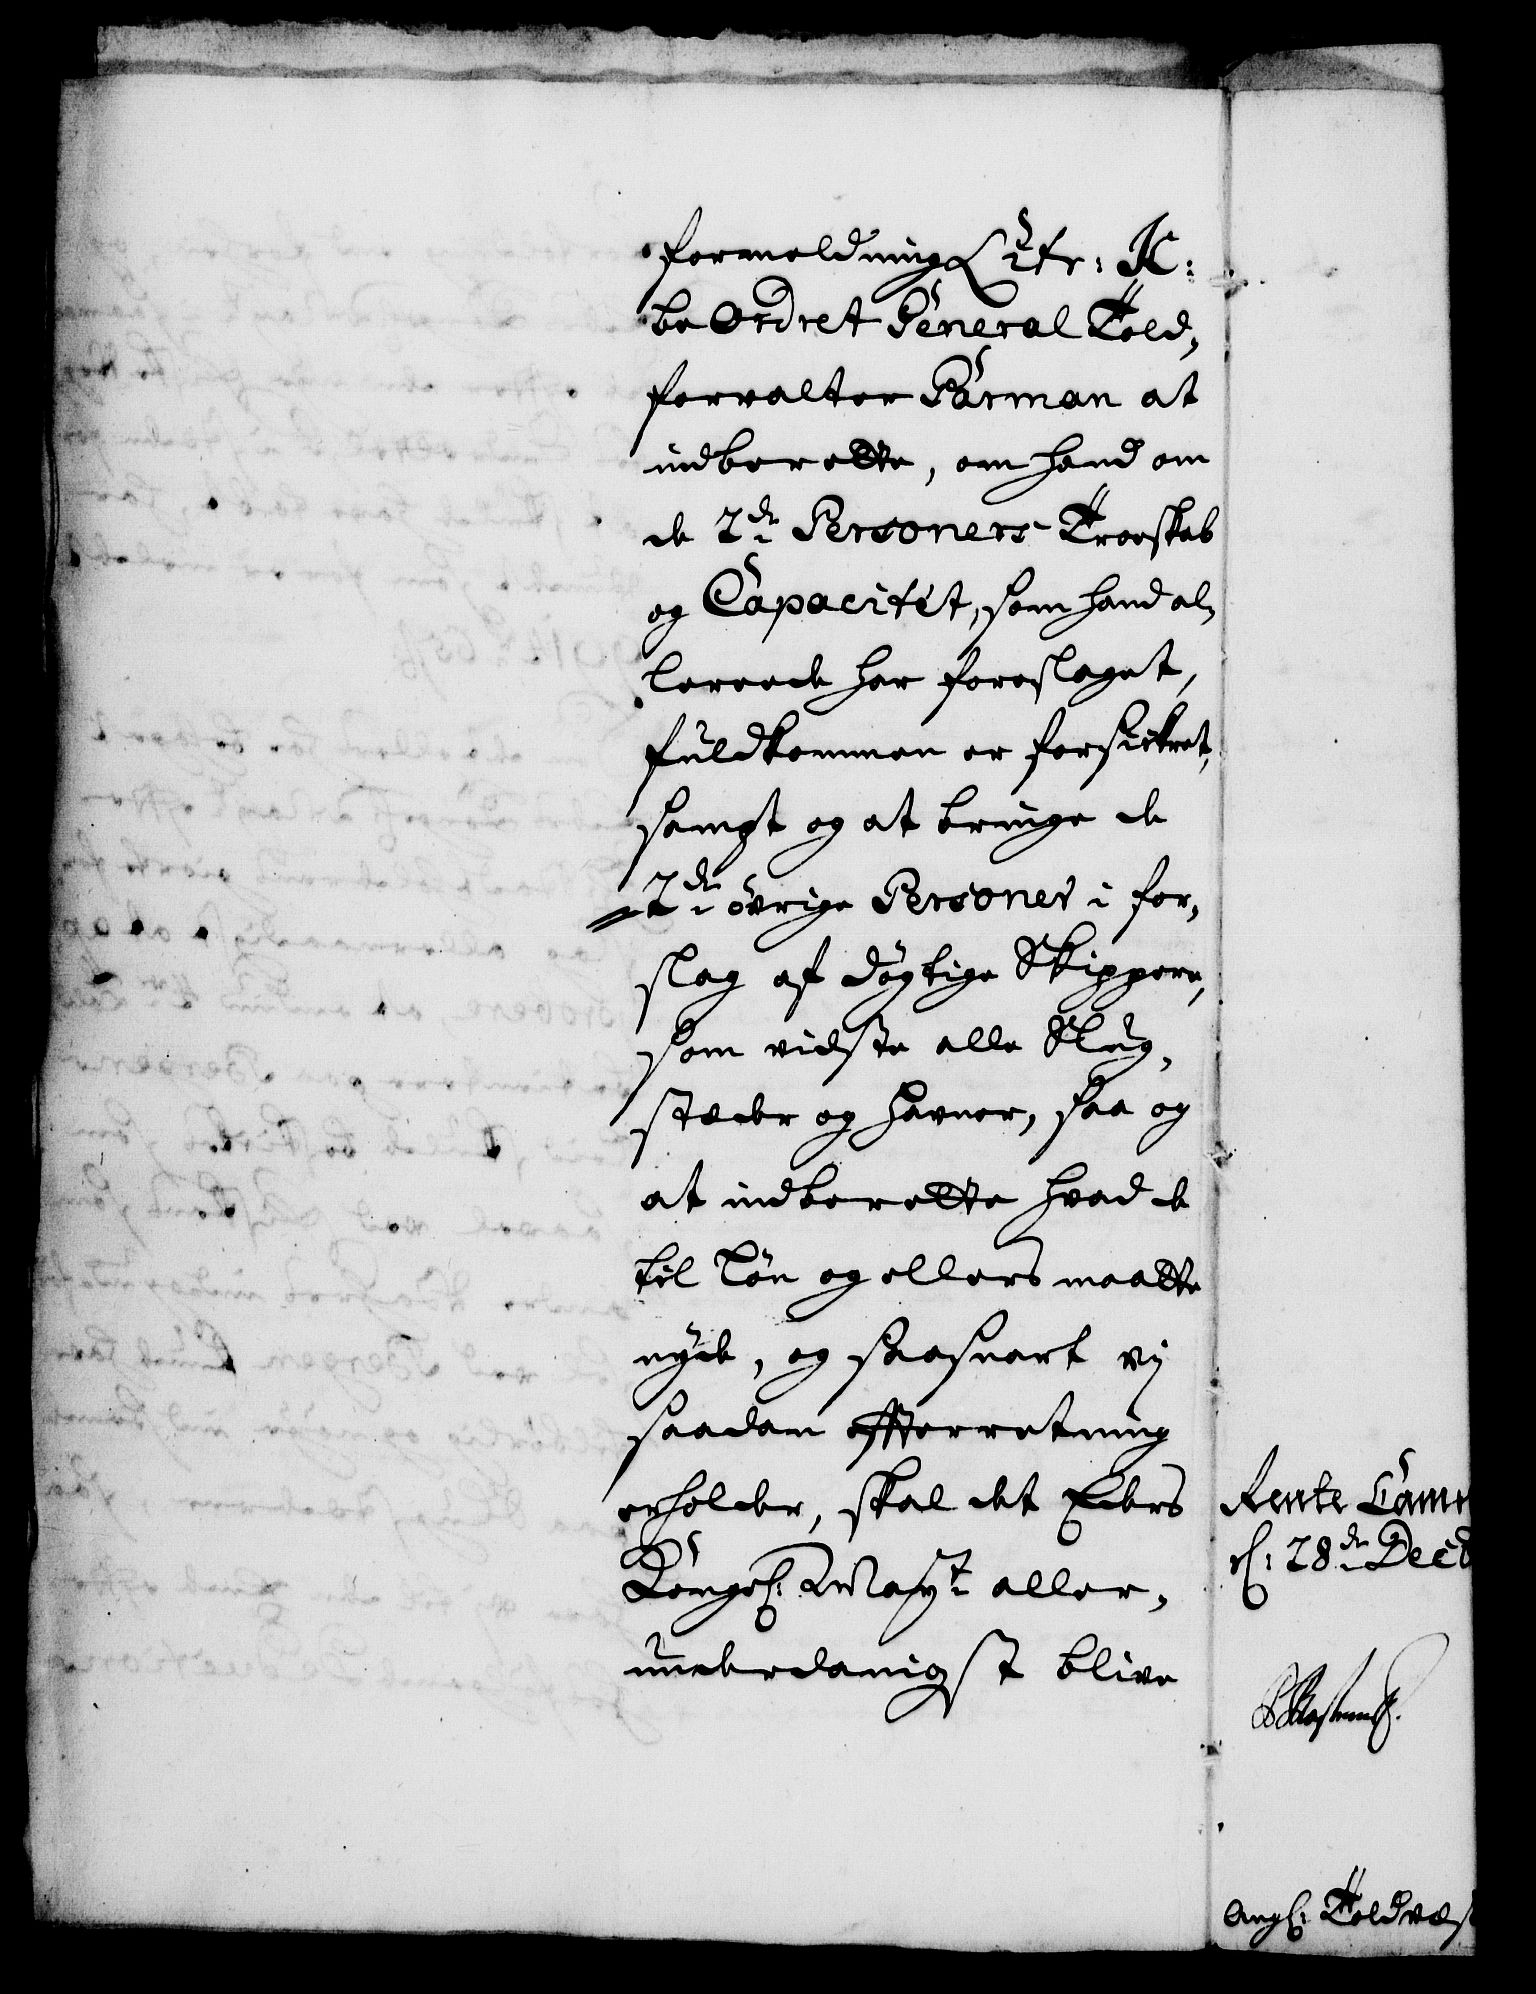 formeldning Litr: K:
be Ordret General Told,
forvalter Pörman at
indberette, om hand om
de 2de Personers Troeskab
og Capacitet, som hand al,
lereede har foreslaget,
fuldkommen er forsickret,
sampt og at bringe de
2de øvrige Personer i for,
slag af dygtige Skippere,
som vidste alle Slug,
stæder og Havner, saa og
at indberette hvad de
til Løn og ellers maatte
nyde, og saasnart vj
saadan efterretning
erholder, skal det Eders
Kongel: Mayt aller,
underdanigst blive
Rente Cam
d: 28de Dec
Angl: Toldvæs